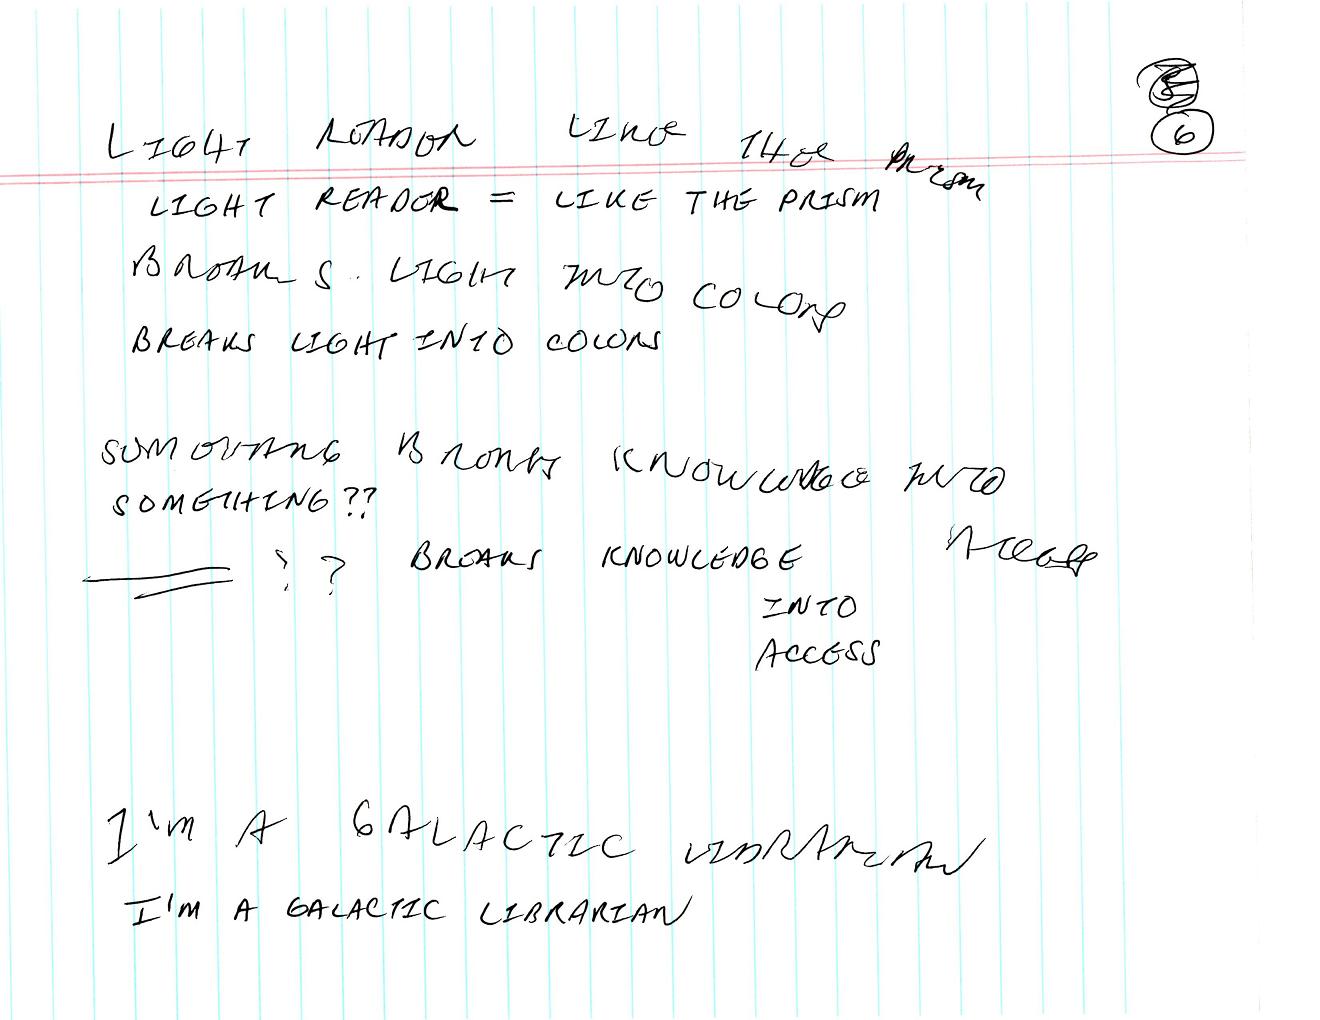 6
LIGHT READER LIKE THE PRISM
LIGHT READER = LIKE THE PRISM
BREAKS LIGHT INTO COLORS
BREAKS LIGHT INTO COLORS
SOMETHING BREAKS KNOWLEDGE INTO
SOMETHING??
ACCESS
? ? BREAKS KNOWLEDGE
INTO
ACCESS
I'M A GALACTIC LIBRARIAN
I'M A GALACTIC LIBRARIAN